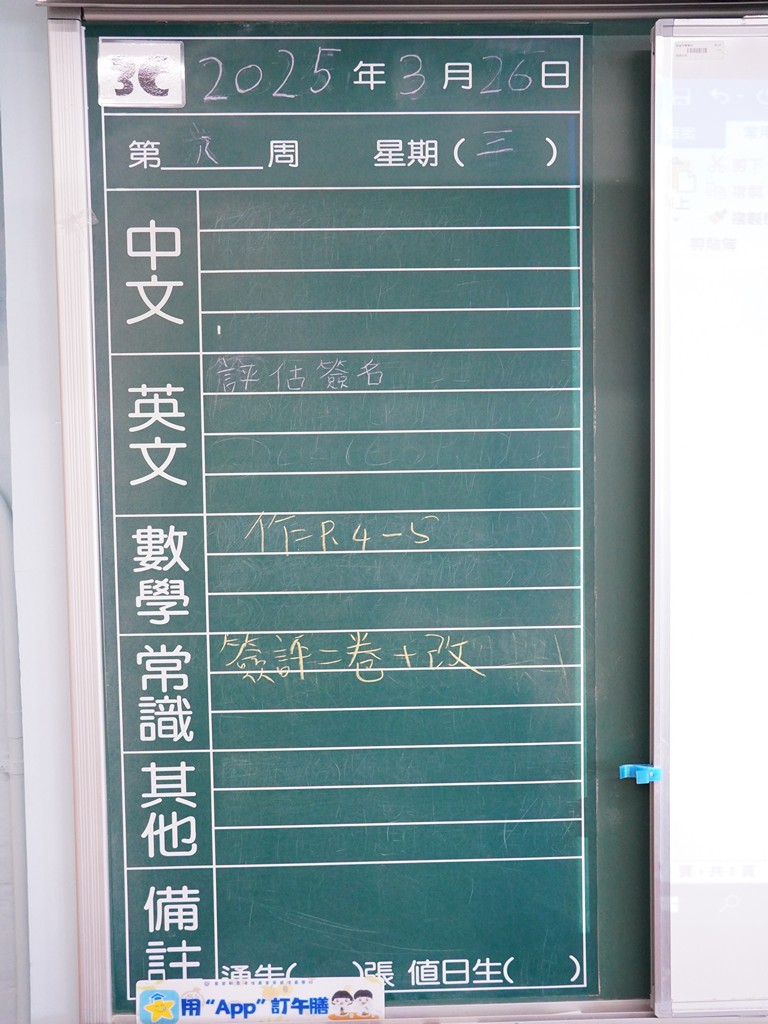 3C 2025年3月26日
第六周 星期(三)
中文
英文
評估簽名
數學
作二P.4-5
常識
簽評二卷+改
其他
備註
通告( )張 值日生( )
用“App”訂午膳